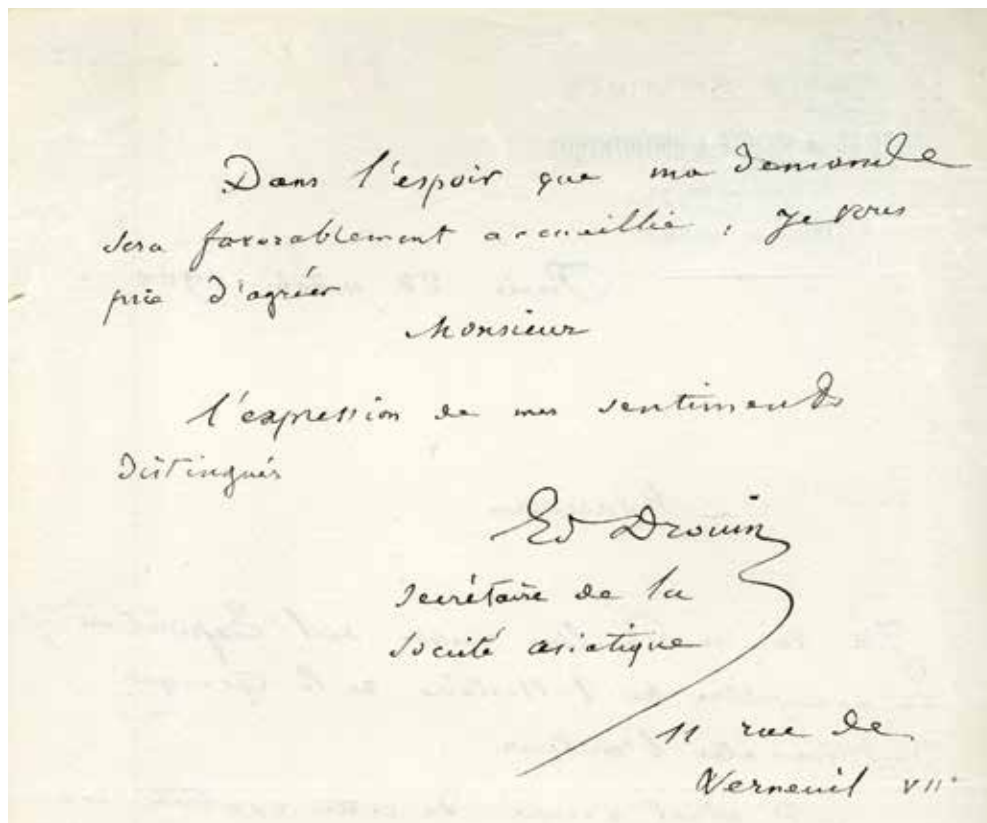 Dans l'espoir que ma demande
sera favorablement accueillie, je vous
prie d'agréer
Monsieur
l'expression de mes sentiments
distingués
Ed Drouin
secrétaire de la
société asiatique
11 rue de
Verneuil VII